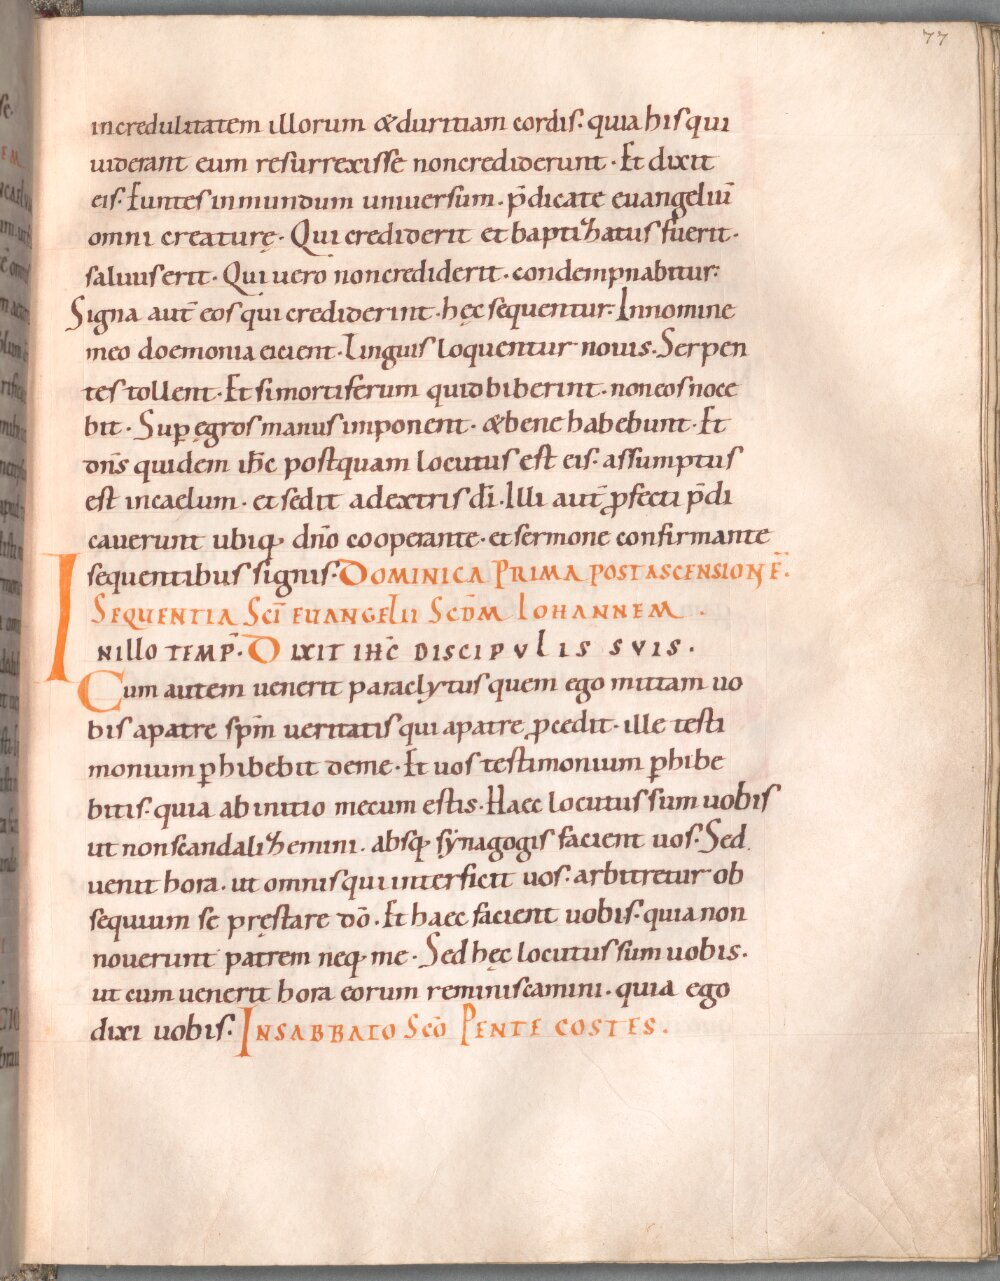 77
incredulitatem illorum & duritiam cordis. quia his qui
uiderant eum resurrexisse non crediderunt. Et dixit
eis. Euntes in mundum uniuersum. p̄dicate euangeliū
omni creaturę. Qui crediderit et baptizatus fuerit.
saluus erit. Qui uero non crediderit. condempnabitur.
Signa aut̄ eos qui crediderint. hęc sequentur. In nomine
meo doemonia eicient. Linguis loquentur nouis. Serpen
tes tollent. Et si mortiferum quid biberint. non eos noce
bit. Sup̱ ęgros manus inponent. & bene habebunt. Et
dn̄s quidem ih̄c postquam locutus est eis. assumptus
est in caelum. et sedit a dextris dī. Illi aut̄ ꝓfecti p̄di
cauerunt ubiq; dn̄o cooperante. et sermone confirmante
sequentibus signis. DOMINICA PRIMA POST ASCENSIONĒ.
SEQUENTIA SCĪ EUANGELII SCD̄M IOHANNEM.
IN ILLO TEMP̄. DIXIT IH̄C DISCIPULIS SUIS.
Cum autem uenerit paraclytus quem ego mittam uo
bis a patre sp̄m ueritatis qui a patre ꝓcedit. ille testi
monium p̱hibebit de me. Et uos testimonium p̱hibe
bitis. quia ab initio mecum estis. Haec locutus sum uobis
ut non scandalizemini. absq; synagogis facient uos. Sed
uenit hora. ut omnis qui interficit uos. arbitretur ob
sequium se pręstare dō. Et haec facient uobis. quia non
nouerunt patrem neq; me. Sed hęc locutus sum uobis.
ut cum uenerit hora eorum reminiscamini. quia ego
dixi uobis. IN SABBATO SCŌ PENTECOSTES.